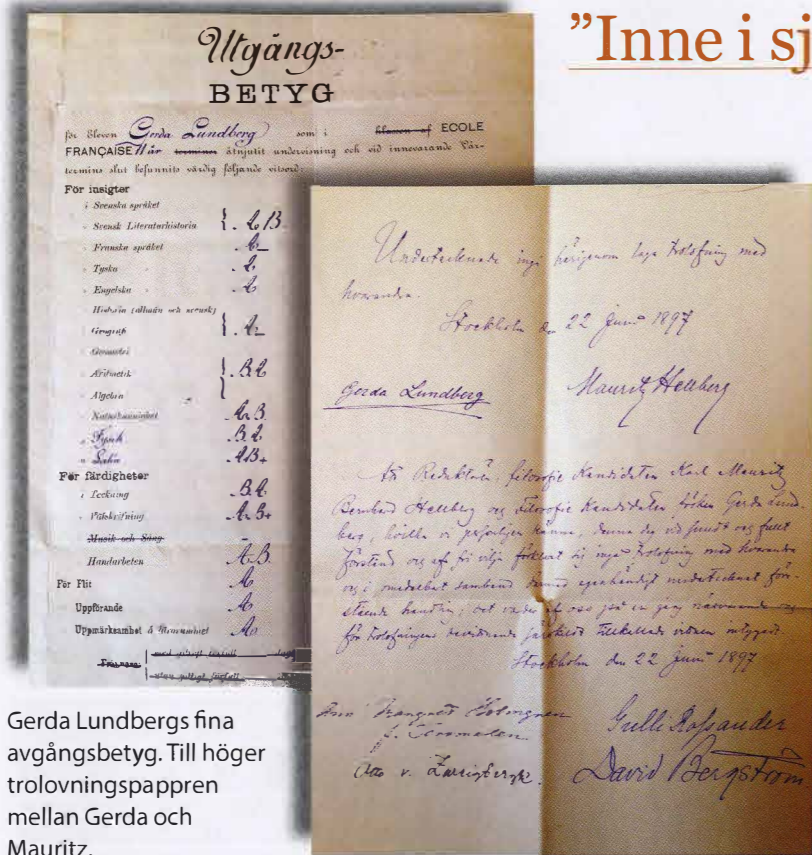 ”Inne i sj
Utgångs-
BETYG
för Eleven Gerda Lundberg som i klassen af ECOLE
FRANÇAISE 11 år terminer åtnjutit undervisning och vid innevarande Vår-
termins slut befunnits värdig följande vitsord:
För insigter
i Svenska språket
" Svensk Literaturhistoria } . AB
" Franska språket A-
" Tyska " . A
" Engelska " A
" Historia (allmän och svensk)
" Geografi } . A-
" Geometri
" Aritmetik } . BA
" Algebra
" Naturkunnighet
" Fysik . BA
" . AB+
För färdigheter
i Teckning . BA
" Välskrifning
Musik och Sång -
Handarbeten AB
För Flit A
Uppförande A
Uppmärksamhet A
med giltigt förfall
utan giltigt förfall
Undertecknade ingå härigenom laga trolofning med
hvarandra.
Stockholm den 22 Juni 1897
Gerda Lundberg Mauritz Hellberg
Att Redaktören, filosofie Kandidaten Karl Mauritz
Bernhard Hellberg och filosofie Kandidaten fröken Gerda Lund-
berg, hvilka vi personligen känna, denna dag vid sundt och fullt
förstånd och af fri vilja förklarat sig ingå trolofning med hvarandra
och i omedelbart samband dermed egenhändigt undertecknat före-
stående handling, det varda af oss på en gång närvarande och
för trolofningens bevittnande särskildt tillkallade vittnen intygad.
Stockholm den 22 Juni 1897
Ann Margret Holmgren Gulli Rossander
f. Tersmeden
Otto v. Zweigbergk. David Bergström
Gerda Lundbergs fina
avgångsbetyg. Till höger
trolovningspappren
mellan Gerda och
Mauritz.